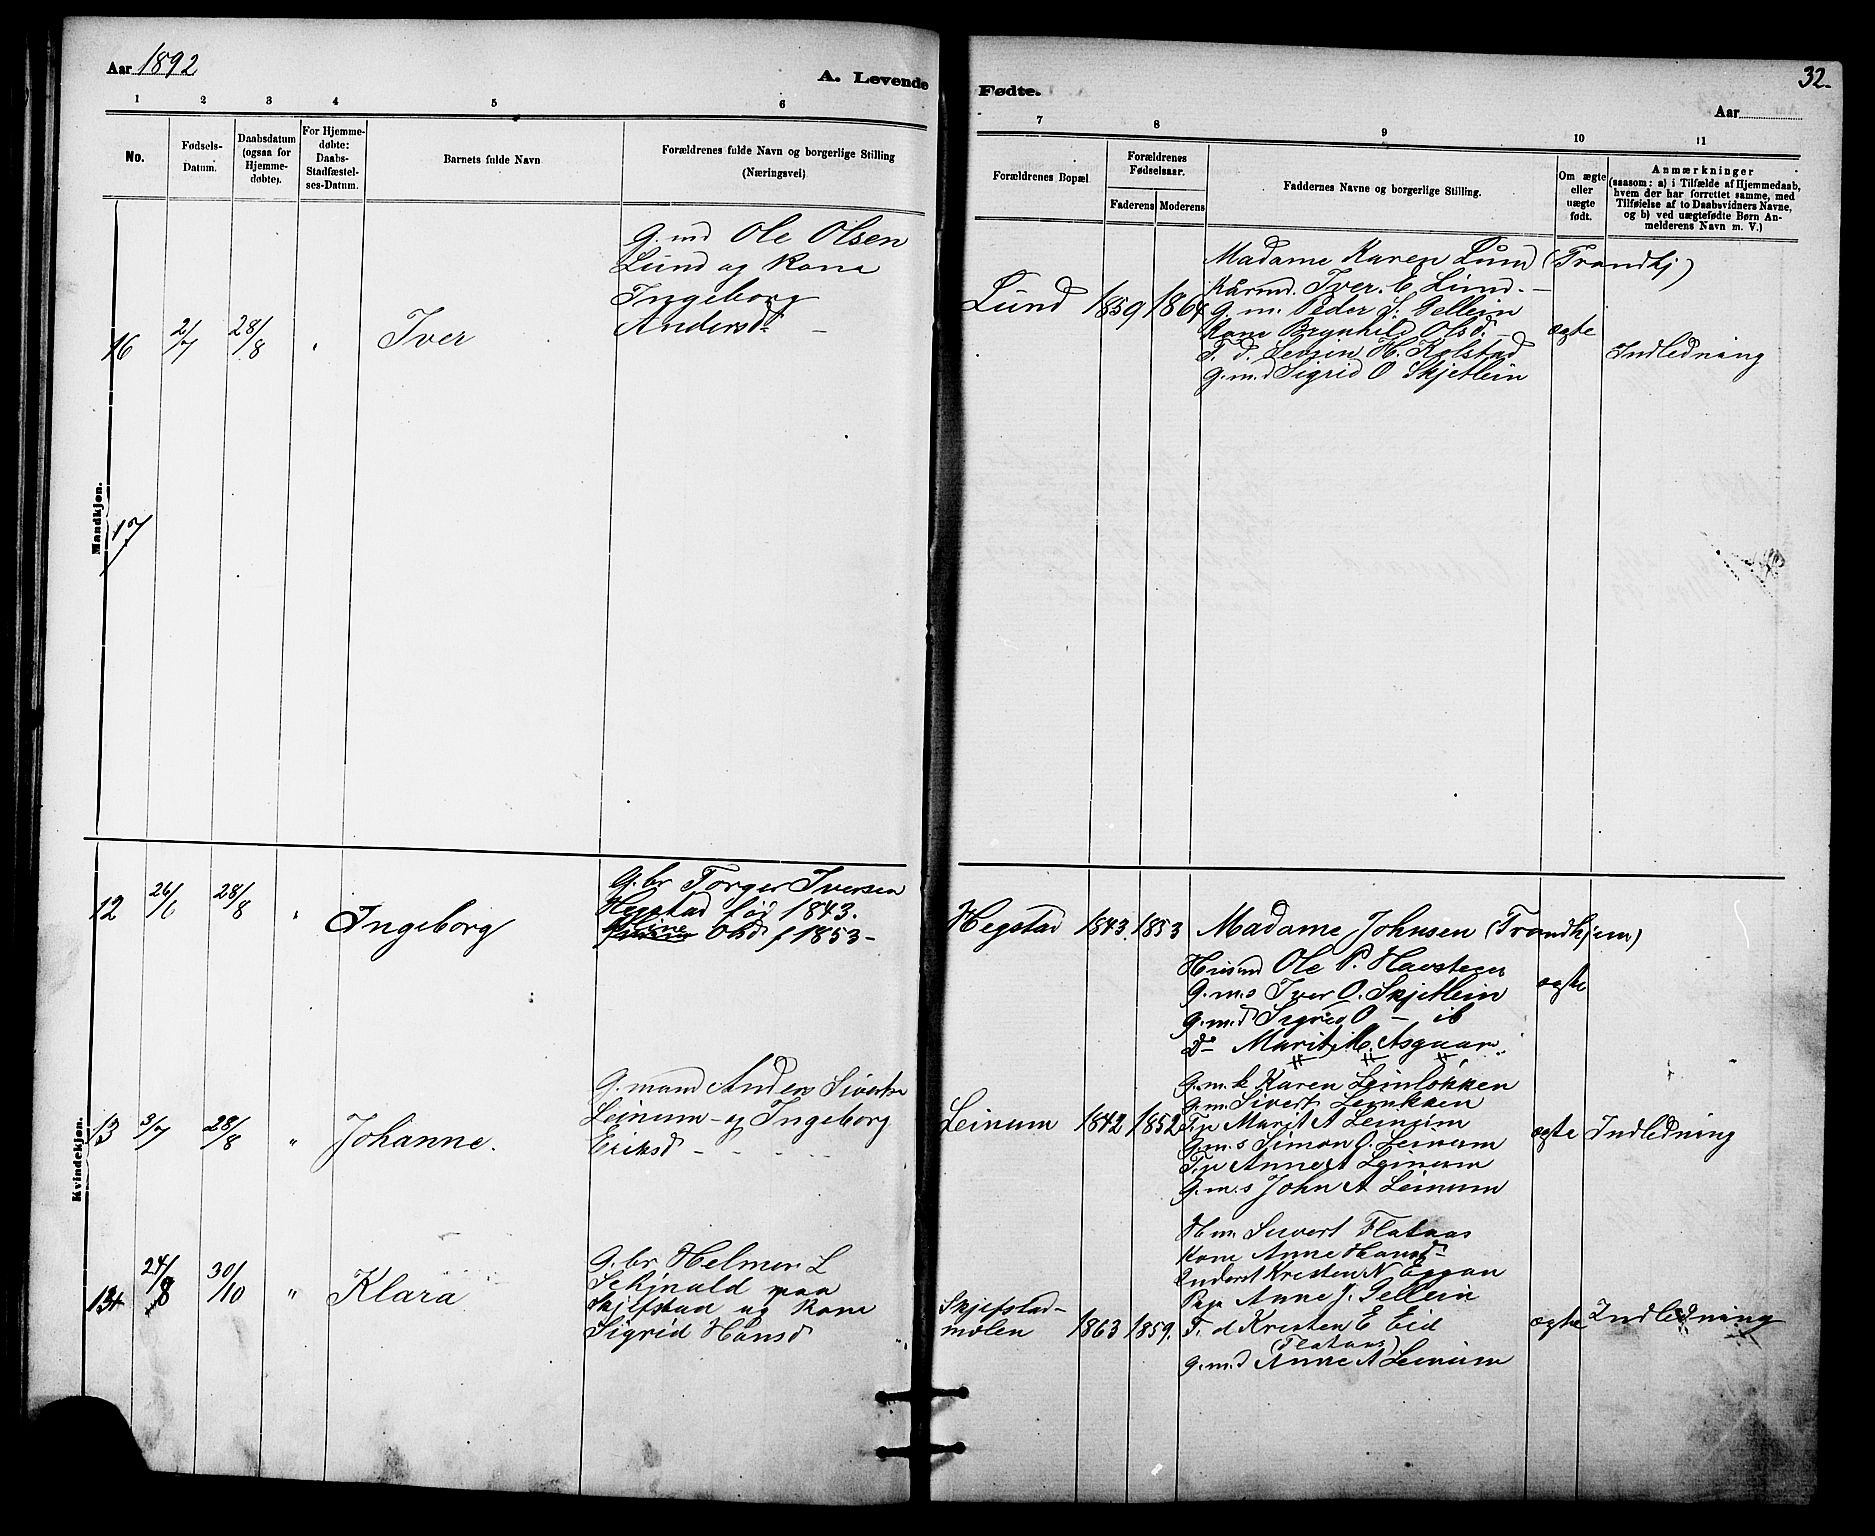 Aar 1892
A. Levende
1 2 3 4 5 6
No.
Fødsels-
Datum.
Daabsdatum
(ogsaa for
Hjemme-
døbte).
For Hjemme-
døbte:
Daabs-
Stadfæstel-
ses-Datum.
Barnets fulde Navn
Forældrenes fulde Navn og borgerlige Stilling
(Næringsvei)
Mandkjøn.
16 2/7 28/8 Iver
G.md Ole Olsen
Lund og Kone
Ingeborg
Andersd. -
17
Kvindekjøn.
12 26/6 28/8 " Ingeborg
G.br Torger Iversen
Hegstad fød 1843.
Olsd f 1853-
13 3/7 28/8 " Johanne.
G.mand Anders Sivertse
Leinum - og Ingeborg
Eriksd - - - -
24/8 30/10 " Klara
G.br Helmer L
paa
Skjefstad og Kone
Sigrid Hansd
Fødte.
32.
Aar
7 8 9 10 11
Forældrenes Bopæl.
Forældrenes
Fødselsaar.
Faderens Moderens
Faddernes Navne og borgerlige Stilling.
Om ægte
eller
uægte
født.
Anmærkninger
(saasom: a) i Tilfælde af Hjemmedaab,
hvem der har forrettet samme, med
Tilføielse af to Daabsvidners Navne,
og b) ved uægtefødte Børn An-
melderens Navn m. V.)
Lund 1859 1864
Madame Karen Lund (Trondhj)
Kårmd. Iver E Lund. -
G. m. Peder S. Gellein
Kone Brynhild Olsd. -
T. d. H. Kolstad
G.m.d Sigrid O Skjetlein
ægte
Indledning
Hegstad 1843. 1853
Madame Johnsen (Trondhjem)
Husmd Ole P. Havstegen
G.m.s Iver O. Skjetlein
G.m.d Sigrid O - ib
Do Marit M. Asgaar
ægte
Leinum 1842 1852
G.m.k Karen Leinløkken
G.m. Sivert Leinkken
T.p Marit A Leinum
G.m.s Simon O. Leinum
T.p Anne A Leinum
G.m.s John A Leinum
ægte Indledning
Skjefstad-
mølen 1863 1859.
Hm Sivert Flataas
Kone Anne Hansd-
Kresten N Eggan
Pige Anne J. Gellein
T. d Kresten E Eid
(Flataas)
G.m.d Anne A Leinum
ægte Indledning